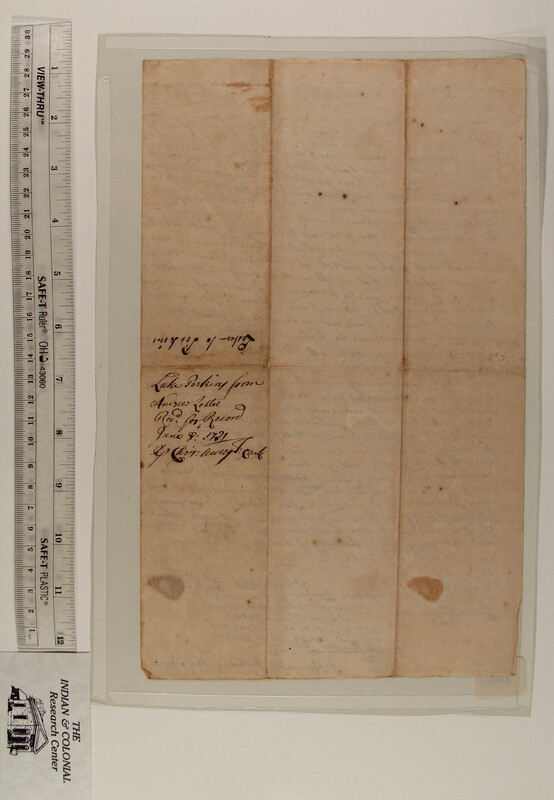 Lester to Perkins
Luke Perkins from
Andrew Lester
Recd. for Record
June 8: 1721
VIEW-THRU™
SAFE-T Ruler® OHD 43060
SAFE-T PLASTIC®
1 2 3 4 5 6 7 8 9 10 11 12
30 29 28 27 26 25 24 23 22 21 20 19 18 17 16 15 14 13 12 11 10 9 8 7 6 5 4 3 2 1
THE
INDIAN & COLONIAL
Research Center